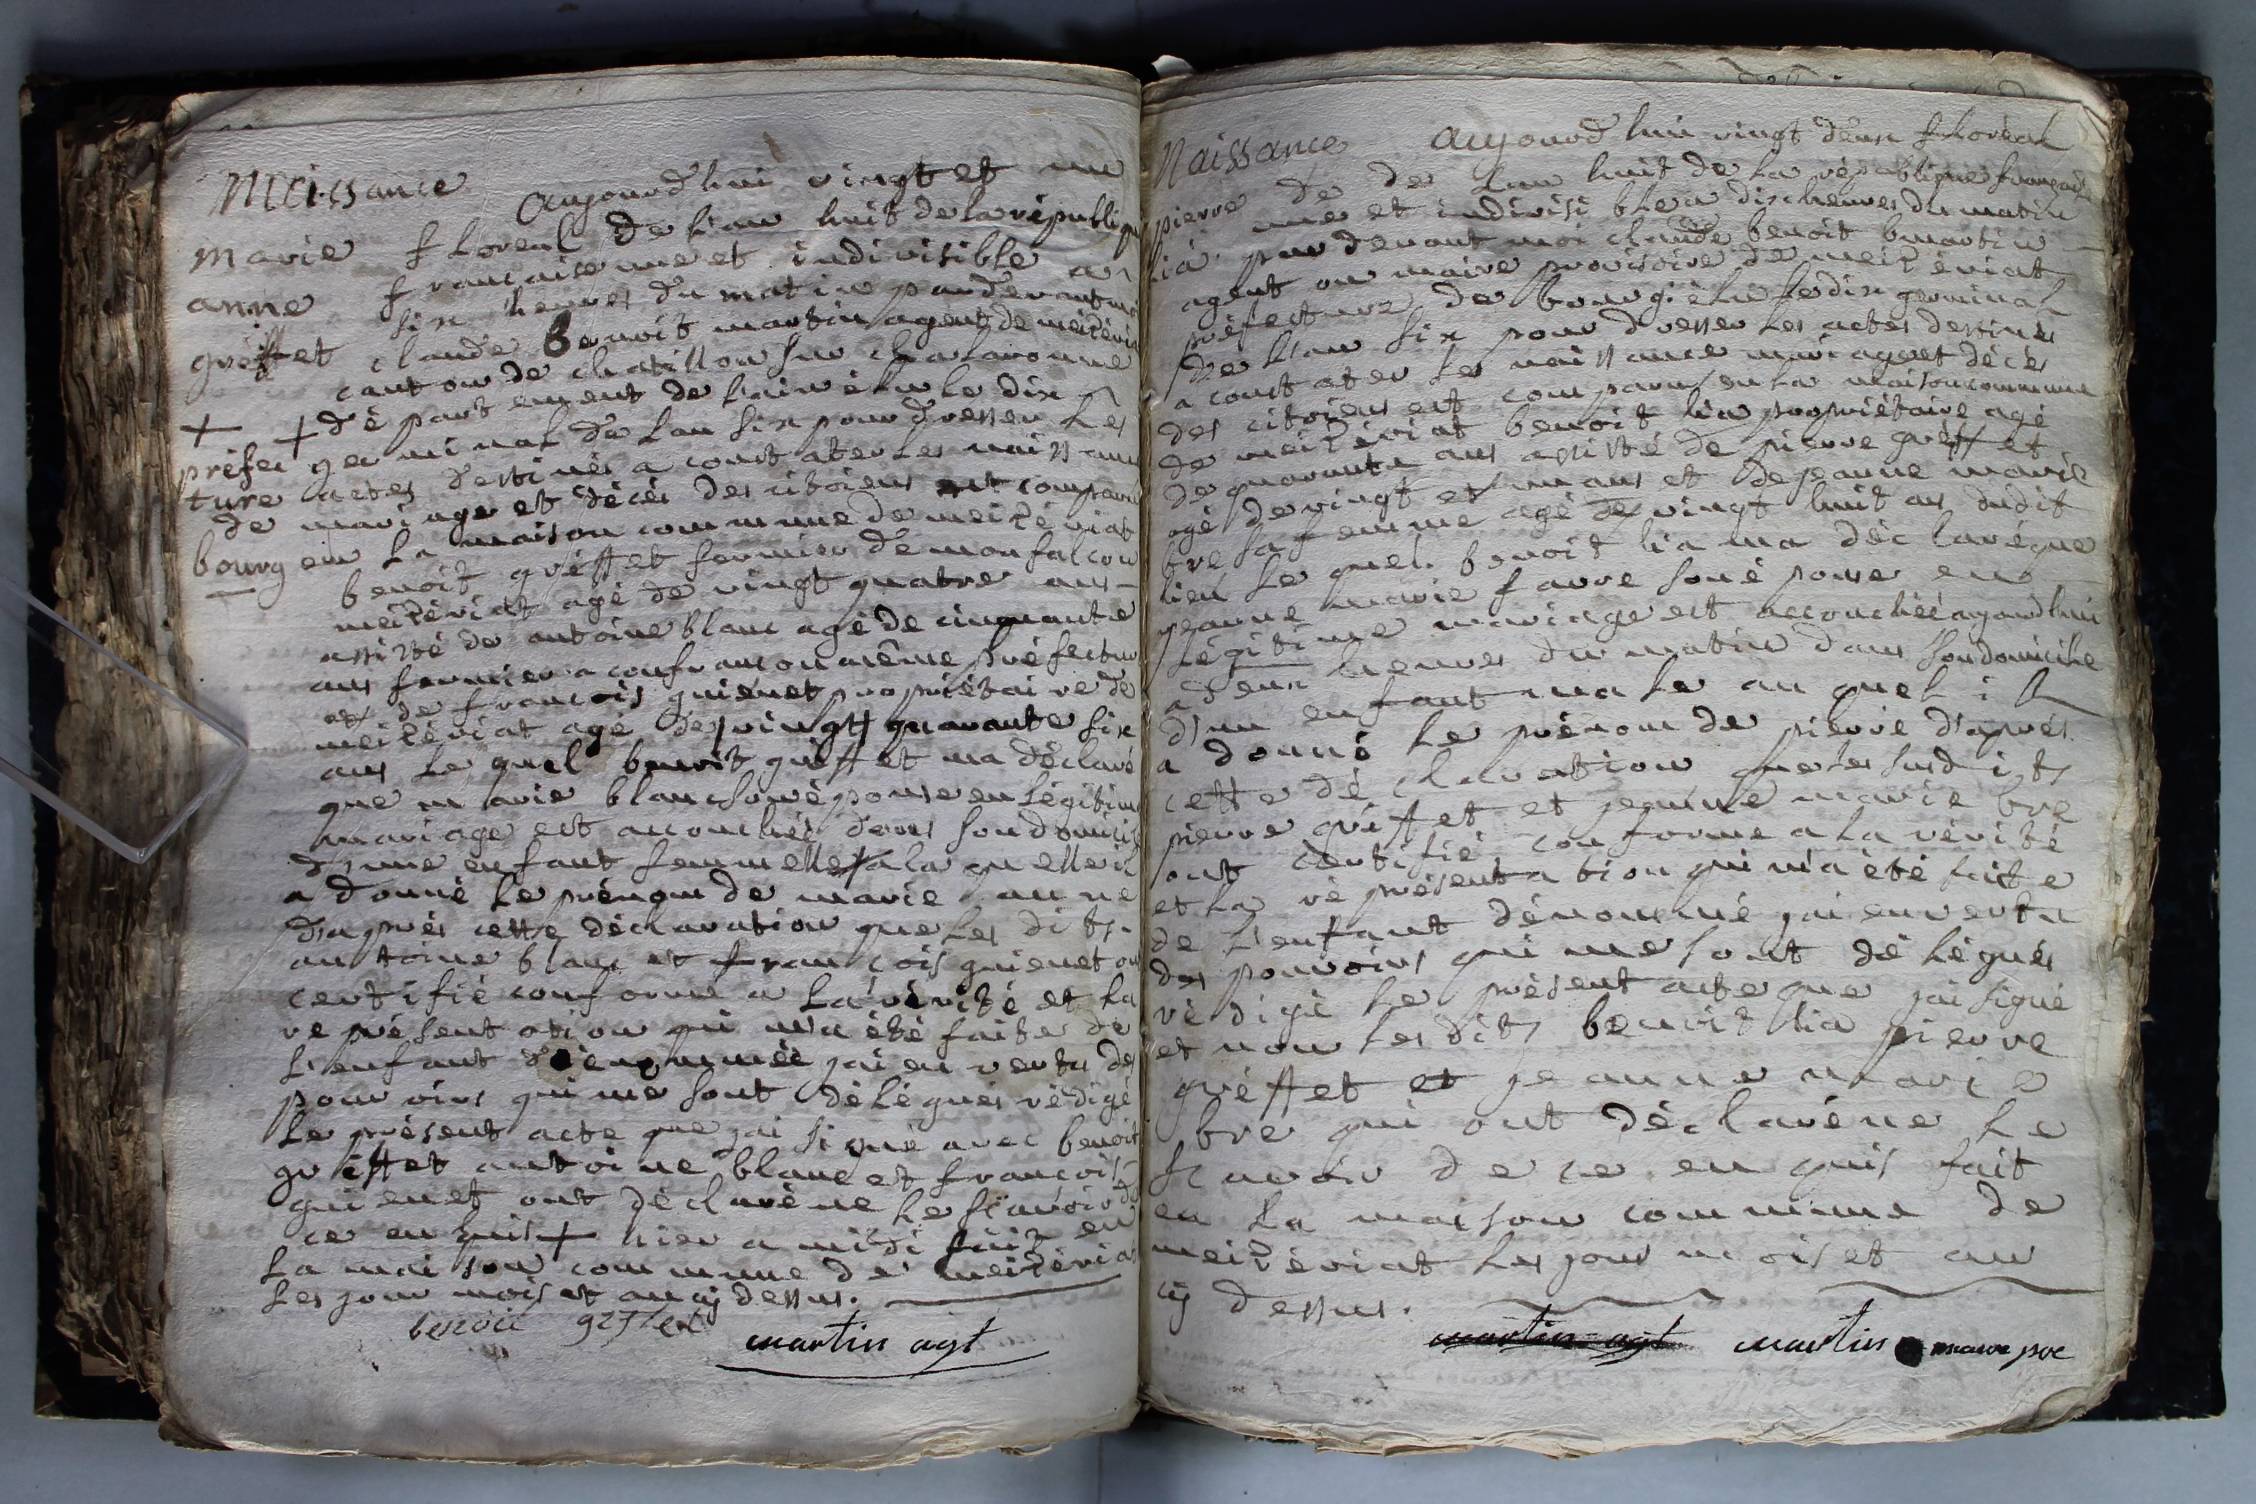 Naissance
aujourdhui vingt et un
marie
floreal de lan huit de la républiqu
anne
francaise une et indivisible a
greffet
six heures du matin par devant moi
claude benoit martin agent de meizériat
canton de chatillon sur chalaronne
+ + département de lain élu le dix
préfec
germinal de lan six pour dresser les
ture
actes destinés a constater les naissance
de
mariage et décés des citoiens est comparu
bourg
en la maison commune de meizériat
benoit gréffet fermier de monfalcon
meizériat agé de vingt quatre ans
assisté de antoine blanc agé de cinquante
ans fermier a confrancon même préfectur
et de francois guienet propriétaire de
meizériat agé de vingt quarante six
ans le quel benoit gréffet ma déclaré
que marie blanc son épouse en légitime
mariage est accouchée dans son domicile
d'une enfant femmelle a la quelle il
a donné le prénom de marie anne
d'aprés cette déclaration que les dits
antoine blanc et francois guienet on
certifié conforme a la vérité et la
représentation qui m'a été faite de
l'enfant dénommée jai en vertu des
pouvoirs qui me sont délégués rédigé
le présent acte que jai signé avec benoit
gréffet antoine blanc et francois
guienet ont déclaré ne le scavoir de
ce enquis + hier a midi fait en
la maison commune de meizériat
les jour mois et an cy dessus.
benoit greffet
martin agt
Naissance
aujourdhui vingt deux floréal
pierre
de de lan huit de la république francaise
lia
une et indivisible a dix heures du matin
par devant moi claude benoit martin
agent ou maire provisoire de meizériat
préfecture de bourg élu le dix germinal
de lan six pour dresser les actes destinés
a constater les naissance mariage et décés
des citoiens est comparu en la maison commune
de meizériat benoit lia propriétaire agé
de quarante ans assisté de pierre gréffet
agé de vingt et un ans et de jeanne marie
bre sa femme agé de vingt huit ans dudit
lieu le quel benoit lia ma déclaré que
jeanne marie favre son épouse en
légitime mariage est accouchée aujourdhui
a deux heures du matin dans son domicile
d'un enfant male au quel il
a donné le prénom de pierre d'aprés
cette déclaration que les susdits
pierre gréffet et jeanne marie bre
ont certifié conforme a la vérité
et la représentation qui m'a été faite
de l'enfant dénommé jai en vertu
des pouvoirs qui me sont délégués
rédigé le présent acte que jai signé
et non les dits benoit lia pierre
gréffet et jeanne marie
bre qui ont déclaré ne le
scavoir de ce enquis fait
en la maison commune de
meizériat les jour mois et an
cy dessus.
martin agt martin maire pre